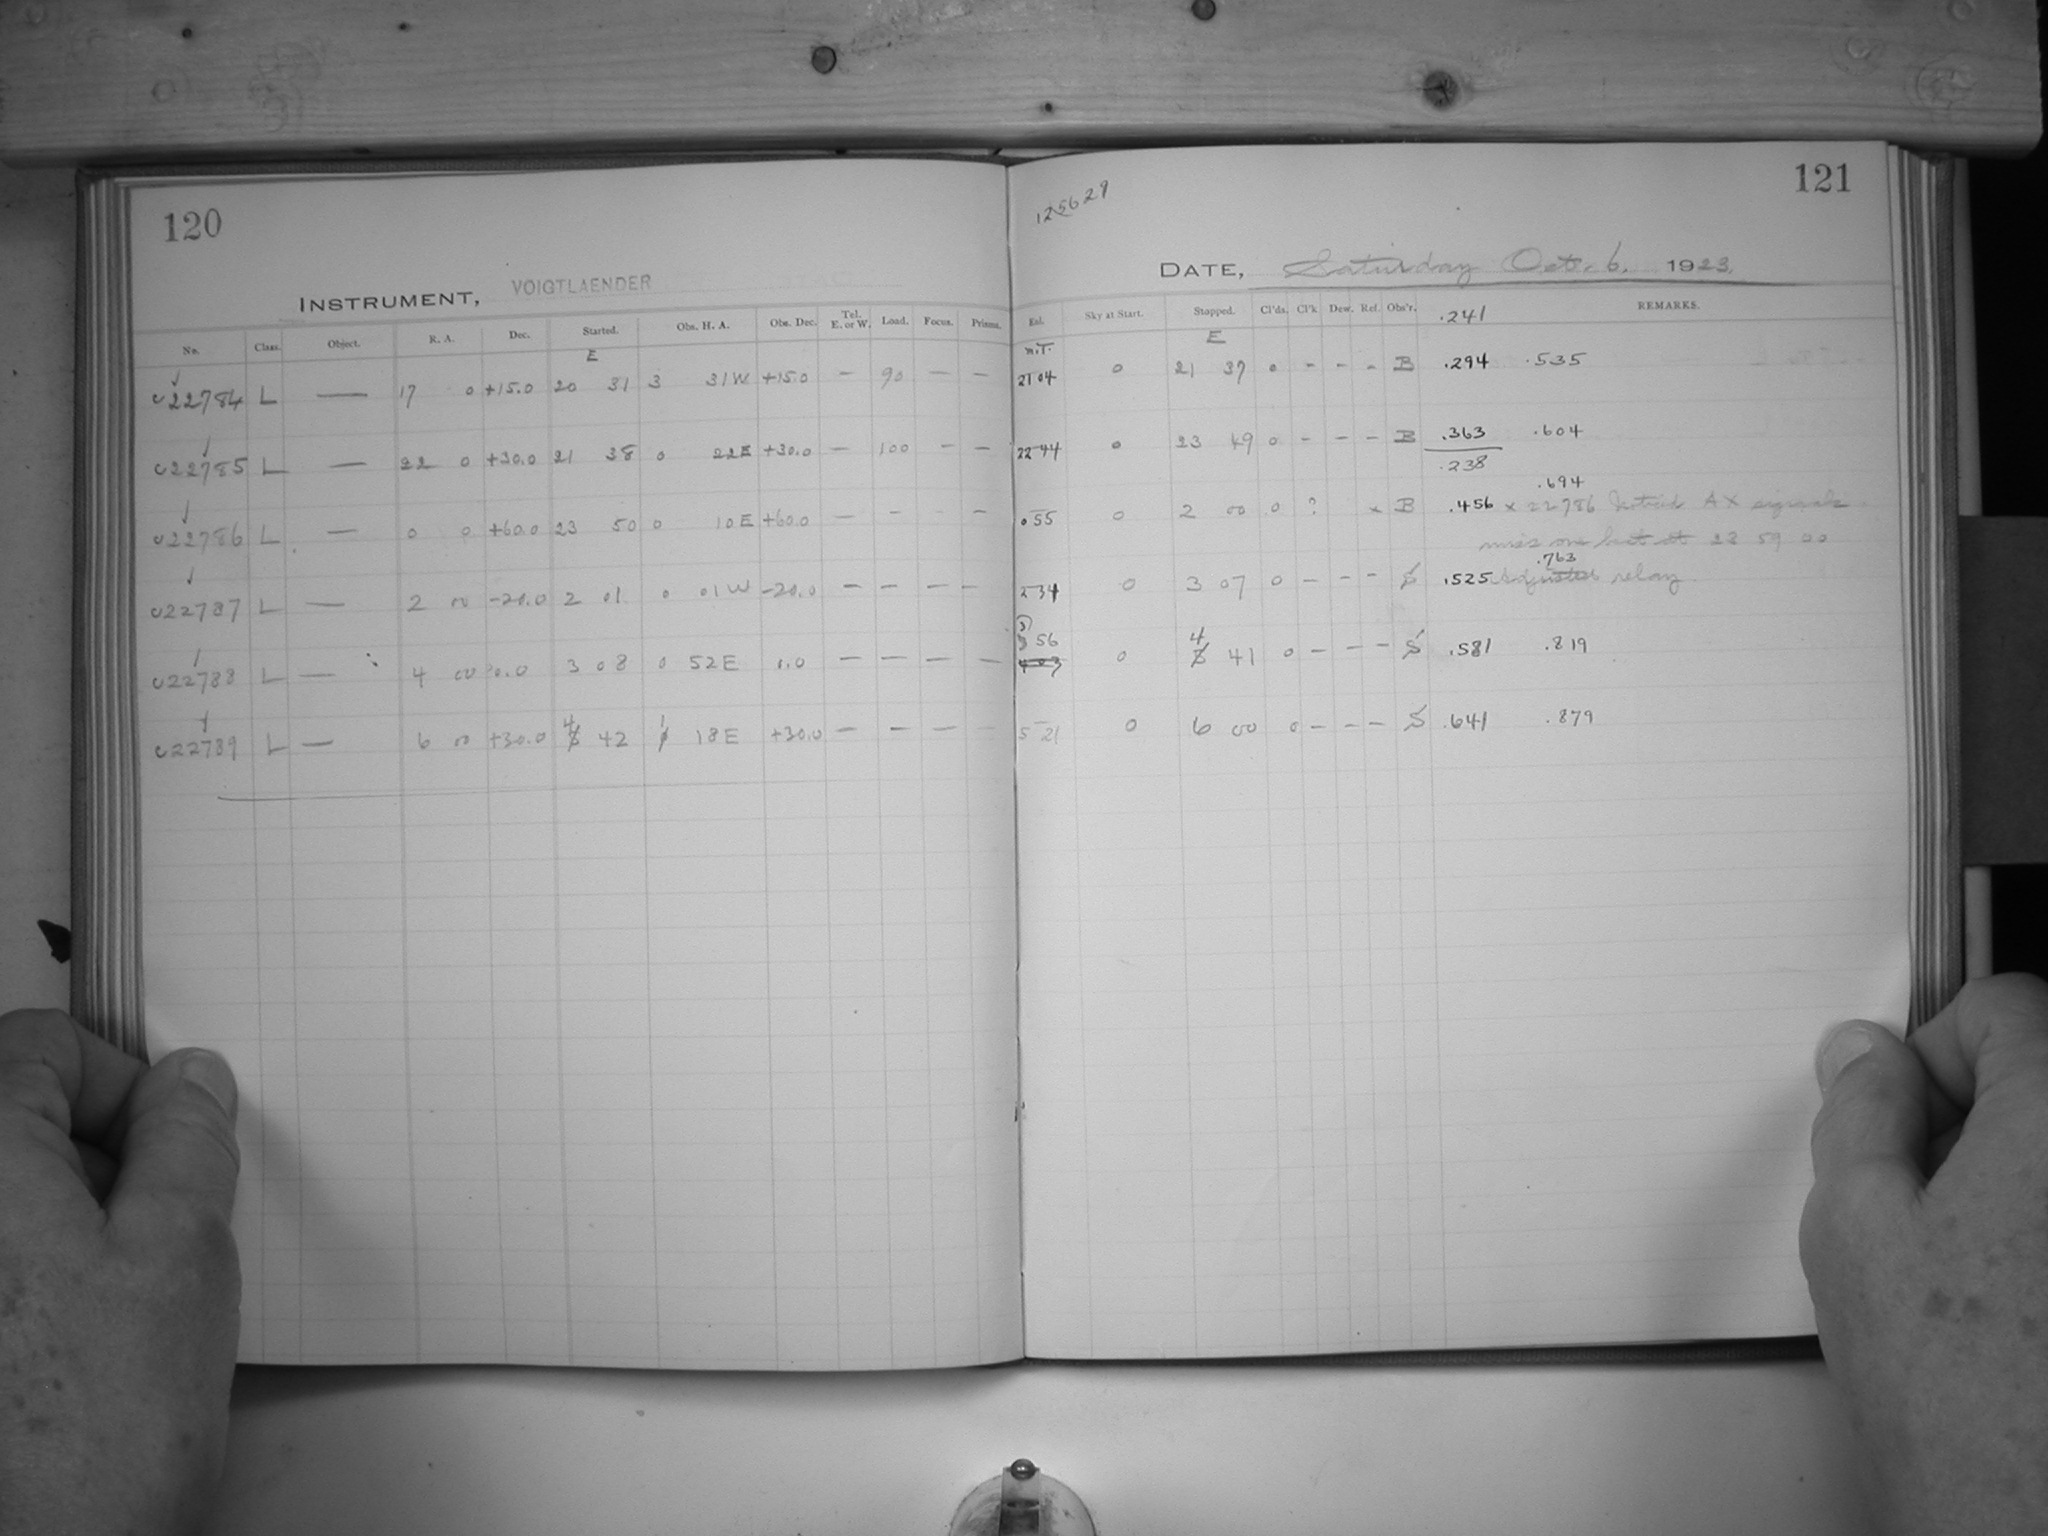 120
INSTRUMENT, VOIGTLAENDER
No. Class. Object. R. A. Dec. Started. Obs. H. A. Obs. Dec. Tel. E. or W. Load. Focus. Prisms.
E
c22784 L — 17 0 +15.0 20 31 3 31W +15.0 — 90 — —
c22785 L — 22 0 +30.0 21 38 0 22E +30.0 — 100 — —
c22786 L — 0 0 +60.0 23 50 0 10E +60.0 — - - —
c22787 L — 2 00 -20.0 2 01 0 01W -20.0 — — — —
c22788 L — 4 00 0.0 3 08 0 52E 0.0 — — — —
c22789 L — 6 00 +30.0 4 42 1 18E +30.0 — — — —
121
125629
DATE, Saturday Oct. 6. 1923.
Exl. Sky at Start. Stopped. Cl'ds. Cl'k Dew. Rel. Obs'r. .241 REMARKS.
M.T. E
21 04 0 21 37 0 - - - B .294 .535
22 44 0 23 49 0 - - - B .363 .604
.238
.694
0 55 0 2 00 0 ? x B .456 x 22786 Noticed AX signals
miss one beat at 23 59 00
.763
2 34 0 3 07 0 — - - S .525 Adjusted relay
3 56 0 4 41 0 - - - S .581 .819
5 21 0 6 00 0 — — — S .641 .879